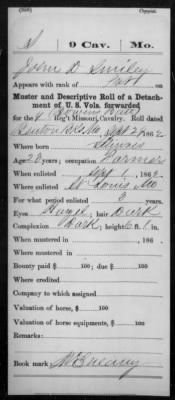 (359) Copyist.
S 9 Cav. Mo.
John D. Smiley
Appears with rank of Pvt on
Muster and Descriptive Roll of a Detach-
ment of U. S. Vols. forwarded
for the 9 Reg't Missouri Cavalry. Roll dated
Benton Bks Mo, Sept 21, 1862.
Where born Illinois
Age 23 years; occupation Farmer
When enlisted Sept 1, 1862.
Where enlisted St Louis Mo
For what period enlisted 3 years.
Eyes Hazel; hair Dark
Complexion Dark; height ft. in.
When mustered in , 186 .
Where mustered in
Bounty paid $ 100; due $ 100
Where credited
Company to which assigned
Valuation of horse, $ 100
Valuation of horse equipments, $ 100
Remarks:
Book mark